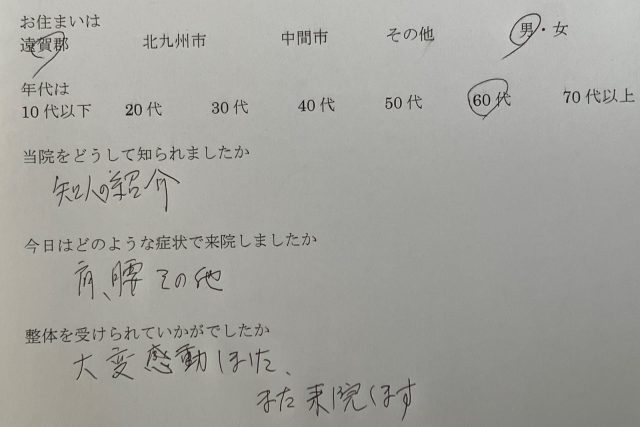 お住まいは
遠賀郡 北九州市 中間市 その他 男・女
年代は
10代以下 20代 30代 40代 50代 60代 70代以上
当院をどうして知られましたか
知人の紹介
今日はどのような症状で来院しましたか
肩、腰 その他
整体を受けられていかがでしたか
大変感動しました、
また来院します